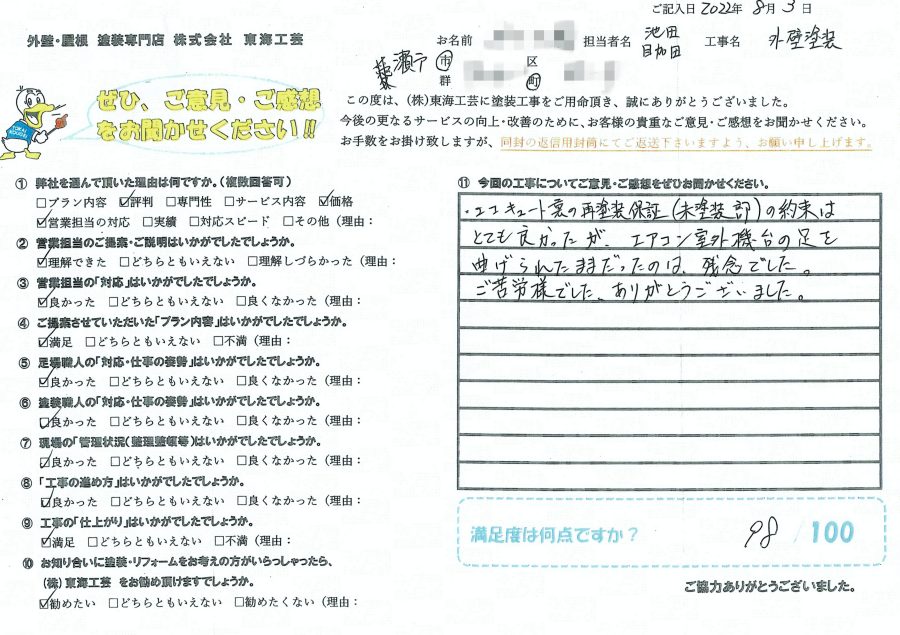 ご記入日 2022年 8月 3日
外壁・屋根 塗装専門店 株式会社 東海工芸
お名前 担当者名 池田 目加田 工事名 外壁塗装
瀬戸 市 区
群 町
ぜひ、ご意見・ご感想
をお聞かせください!!
この度は、(株)東海工芸に塗装工事をご用命頂き、誠にありがとうございました。
今後の更なるサービスの向上・改善のために、お客様の貴重なご意見・ご感想をお聞かせください。
お手数をお掛け致しますが、同封の返信用封筒にてご返送下さいますよう、お願い申し上げます。
① 弊社を選んで頂いた理由は何ですか。(複数回答可)
□プラン内容 ☑評判 □専門性 □サービス内容 ☑価格
☑営業担当の対応 □実績 □対応スピード □その他(理由:
② 営業担当のご提案・ご説明はいかがでしたでしょうか。
☑理解できた □どちらともいえない □理解しづらかった(理由:
③ 営業担当の「対応」はいかがでしたでしょうか。
☑良かった □どちらともいえない □良くなかった(理由:
④ ご提案させていただいた「プラン内容」はいかがでしたでしょうか。
☑満足 □どちらともいえない □不満(理由:
⑤ 足場職人の「対応・仕事の姿勢」はいかがでしたでしょうか。
☑良かった □どちらともいえない □良くなかった(理由:
⑥ 塗装職人の「対応・仕事の姿勢」はいかがでしたでしょうか。
☑良かった □どちらともいえない □良くなかった(理由:
⑦ 現場の「管理状況(整理整頓等)はいかがでしたでしょうか。
☑良かった □どちらともいえない □良くなかった(理由:
⑧ 「工事の進め方」はいかがでしたでしょうか。
☑良かった □どちらともいえない □良くなかった(理由:
⑨ 工事の「仕上がり」はいかがでしたでしょうか。
☑満足 □どちらともいえない □不満(理由:
⑩ お知り合いに塗装・リフォームをお考えの方がいらっしゃったら、
(株)東海工芸 をお勧め頂けますでしょうか。
☑勧めたい □どちらともいえない □勧めたくない(理由:
⑪ 今回の工事についてご意見・ご感想をぜひお聞かせください。
・エコキュート裏の再塗装保証(未塗装部)の約束は
とても良かったが、エアコン室外機台の足を
曲げられたままだったのは、残念でした。
ご苦労様でした、ありがとうございました。
満足度は何点ですか? 98 / 100
ご協力ありがとうございました。